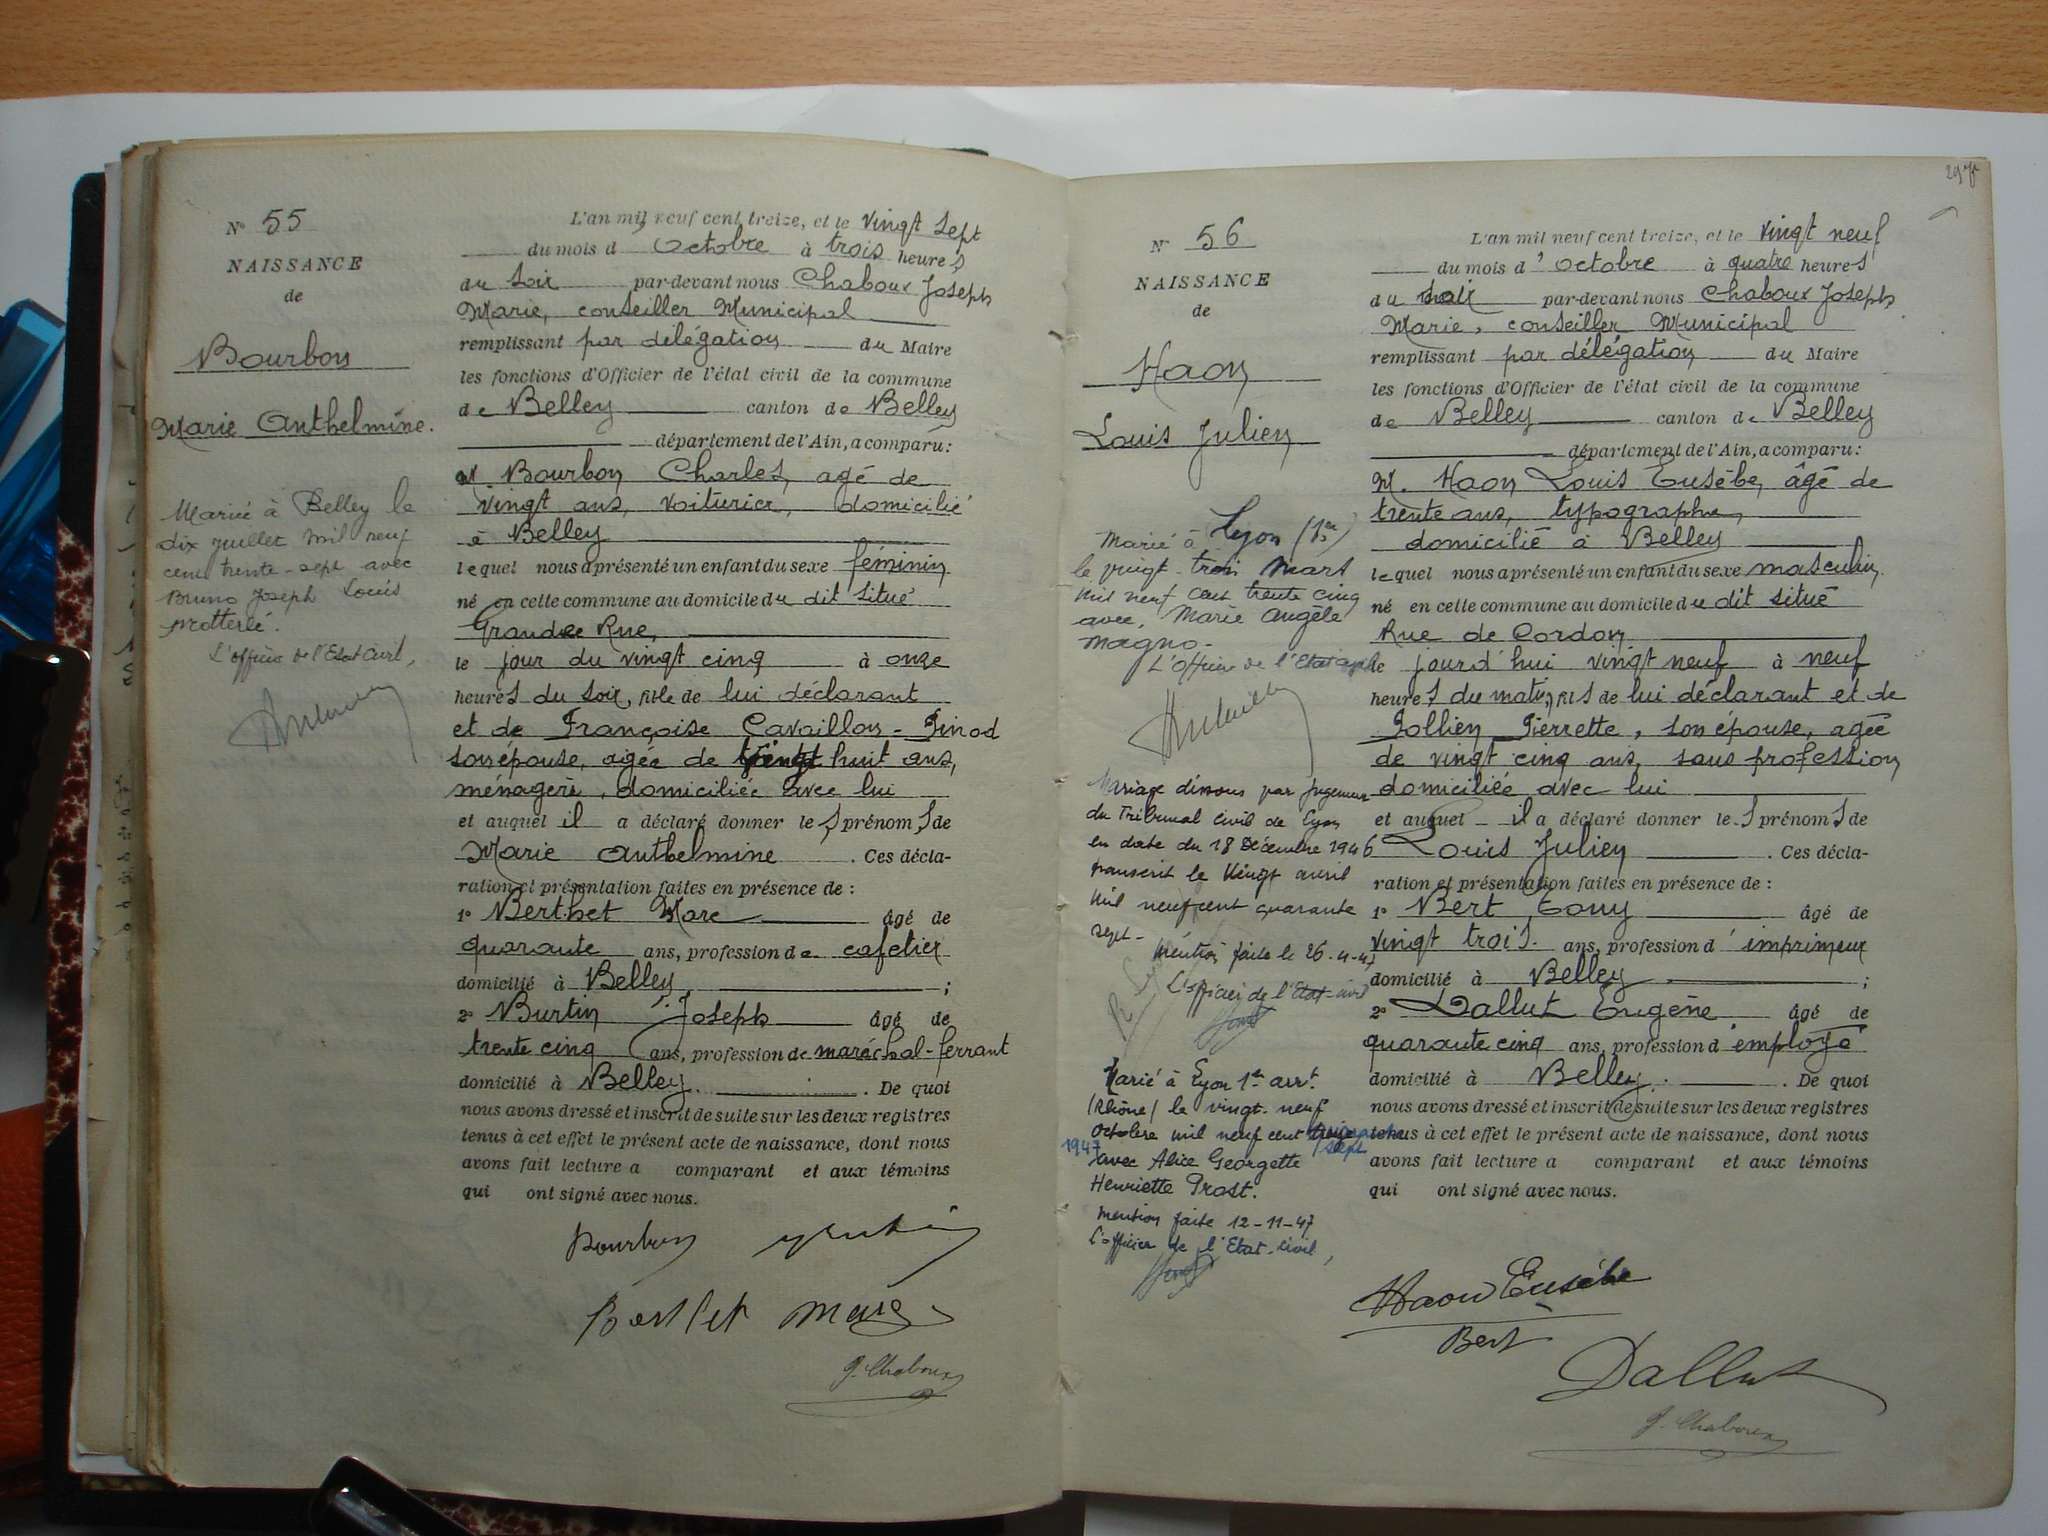 N° 55
NAISSANCE
de
Bourbon
Marie Anthelmine.
Mariée à Belley le
dix juillet mil neuf
cent trente-sept avec
Bruno Joseph Louis
L'officier de l'Etat Civil,
L'an mil neuf cent treize, et le vingt sept
du mois d Octobre à trois heures
du soir par-devant nous Chaboux Joseph
Marie, conseiller Municipal
remplissant par délégation du Maire
les fonctions d'Officier de l'état civil de la commune
de Belley canton de Belley
département de l'Ain, a comparu:
M. Bourbon Charles, agé de
vingt ans, voiturier, domicilié
à Belley
lequel nous a présenté un enfant du sexe féminin
né en cette commune au domicile du dit situé
Grande Rue,
le jour du vingt cinq à onze
heures du soir, fille de lui déclarant
et de Françoise Cavaillon-Pinod
son épouse, agée de vingt huit ans,
ménagère, domiciliée avec lui
et auquel il a déclaré donner les prénoms de
Marie Anthelmine. Ces décla-
ration et présentation faites en présence de :
1° Berthet Marc âgé de
quarante ans, profession de cafetier
domicilié à Belley ;
2° Burtin Joseph âgé de
trente cinq ans, profession de maréchal-ferrant
domicilié à Belley. De quoi
nous avons dressé et inscrit de suite sur les deux registres
tenus à cet effet le présent acte de naissance, dont nous
avons fait lecture a comparant et aux témoins
qui ont signé avec nous.
Bourbon
Berthet Marc
J. Chaboux
N° 56
NAISSANCE
de
Haon
Louis Julien
Marié à Lyon (1er)
le vingt-trois Mars
mil neuf cent trente cinq
avec, Marie Angèle
Magno-
L'officier de l'Etat civil
Mariage dissous par Jugement
du Tribunal civil de Lyon
en date du 18 Décembre 1946
transcrit le Vingt avril
mil neuf cent quarante
sept-
Mention faite le 26-4-47
L'officier de l'Etat-civil
Marié à Lyon 1er arrt.
(Rhône) le vingt-neuf
octobre mil neuf cent quarante
sept
1947
avec Alice Georgette
Henriette Prost.
mention faite 12-11-47
L'officier de l'Etat-civil,
L'an mil neuf cent treize, et le vingt neuf
du mois d'octobre à quatre heures
du soir par-devant nous Chaboux Joseph
Marie, conseiller Municipal
remplissant par délégation du Maire
les fonctions d'Officier de l'état civil de la commune
de Belley canton de Belley
département de l'Ain, a comparu:
M. Haon Louis Eusèbe, âgé de
trente ans, typographe,
domicilié à Belley
lequel nous a présenté un enfant du sexe masculin
né en cette commune au domicile du dit situé
Rue de Cordon
le jourd'hui vingt neuf à neuf
heures du matin, fils de lui déclarant et de
Pollien Pierrette, son épouse, agée
de vingt cinq ans, sans profession
domiciliée avec lui
et auquel il a déclaré donner les prénoms de
Louis Julien. Ces décla-
ration et présentation faites en présence de :
1° Bert Tony âgé de
vingt trois ans, profession d'imprimeur
domicilié à Belley ;
2° Dallut Eugène âgé de
quarante cinq ans, profession d'employé
domicilié à Belley. De quoi
nous avons dressé et inscrit de suite sur les deux registres
tenus à cet effet le présent acte de naissance, dont nous
avons fait lecture a comparant et aux témoins
qui ont signé avec nous.
Haon Eusèbe
Bert
Dallut
J. Chaboux